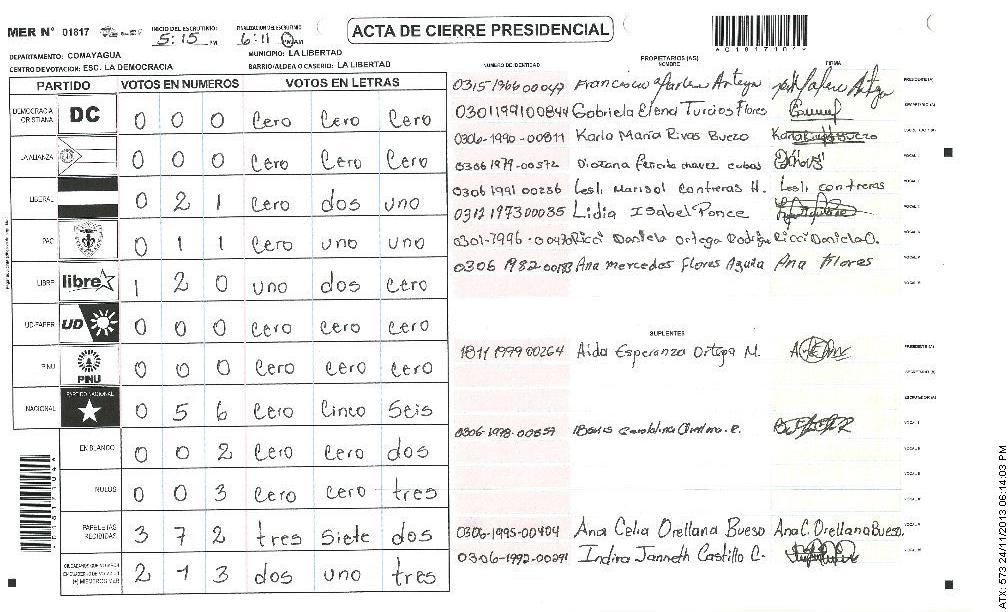 MER N° 01817
INICIO DEL ESCRUTINIO 5:15 PM
FINALIZACION DEL ESCRUTINIO 6:11 PM AM
ACTA DE CIERRE PRESIDENCIAL
DEPARTAMENTO: COMAYAGUA
MUNICIPIO: LA LIBERTAD
CENTRO DE VOTACION: ESC. LA DEMOCRACIA
BARRIO/ALDEA O CASERIO: LA LIBERTAD
PARTIDO VOTOS EN NUMEROS VOTOS EN LETRAS
DEMOCRACIA CRISTIANA DC 0 0 0 Cero Cero Cero
LA ALIANZA 0 0 0 Cero Cero Cero
LIBERAL 0 2 1 Cero dos uno
PAC 0 1 1 Cero uno uno
LIBRE libre 1 2 0 uno dos Cero
UD-FAPER UD 0 0 0 Cero Cero Cero
PINU PINU 0 0 0 Cero Cero Cero
NACIONAL PARTIDO NACIONAL 0 5 6 Cero Cinco Seis
EN BLANCO 0 0 2 Cero Cero dos
NULOS 0 0 3 Cero Cero tres
PAPELETAS RECIBIDAS 3 7 2 tres Siete dos
(+) MIEMBROS MER 2 1 3 dos uno tres
PROPIETARIOS (AS)
NUMERO DE IDENTIDAD NOMBRE FIRMA
Francisco Ortega PRESIDENTE (A)
0301199100844 Gabriela Elena Turcios Flores SECRETARIO (A)
0306-1990-00811 Karla María Rivas Buezo
0306 1979-00572 chavez cubas VOCAL I
0306 1991 00236 Lesli Marisol Contreras H. Lesli contreras
0312 1973 00035 Lidia Isabel Ponce
Ricci Daniela Ortega Ricci Daniela O.
Ana mercedes Flores Ana Flores
SUPLENTES
1811 1999 00264 Aida Esperanza Ortega M. PRESIDENTE (A)
SECRETARIO (A)
ESCRUTADOR (A)
0306-1995-00404 Ana Celia Orellana Bueso Ana C. Orellana Bueso.
0306-1992-00291 Indira Janneth Castillo C.
ATX: 573 24/11/2013 06:14:03 PM